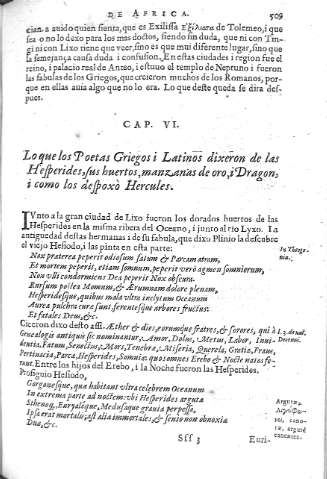 DE AFRICA. 509
cian. a auido quien sienta, que es Exilissa Εξίλισσα de Tolemeo, i que
sea o no lo dexo para los mas doctos, siendo sin duda, que ni con Tin-
gi ni con Lixo tiene que veer, sino es que mui diferente lugar, sino que
la semejança causa duda i confusion. En estas ciudades i region fue el
reino, i palacio real de Anteo, i estuuo el templo de Neptuno i fueron
las fabulas de los Griegos, que creieron muchos de los Romanos, por-
que en ellas auia algo que no lo era. Lo que deste queda se dira des-
pues.
CAP. VI.
Lo que los Poetas Griegos i Latinos dixeron de las
Hesperides, sus huertos, manzanas de oro, i Dragon,
i como los despoxò Hercules.
IVnto a la gran ciudad de Lixo fueron los dorados huertos de las
Hesperides en la misma ribera del Oceano, i junto al rio Lyxo. La
antiguedad destas hermanas i de su fabula, que dixo Plinio la descubre
el viejo Hesiodo, i las pinta en esta parte:
In Theogo-
nia.
Nox praterea peperit odiosum fatum & Parcam atram,
Et mortem peperit, etiam somnum, peperit verò agmen somniorum,
Non vlli condormiens Dea peperit Nox obscura.
Rursum postea Momum, & Ærumnam dolore plenam,
Hesperidesque, quibus mala vltra inclytum Oceanum
Aurea pulchra cura sunt ferentesque arbores fructus.
Et fatales Deas, &c.
Ciceron dixo desto assi. Æther & dies, eorumque fratres, & sorores, qui à
Genealogis antiquis sic nominantur, Amor, Dolus, Metus, Labor, Inui-
dentia, Fatum, Senectus, Mors, Tenebræ, Miseria, Querela, Gratia, Fraus,
Pertinacia, Parcæ, Hesperides, Somnia: quos omnes Erebo & Nocte natos fe-
runt. Entre los hijos del Erebo, i la Noche fueron las Hesperides.
Prosiguio Hesiodo,
Gorgonesque, quæ habitant vltra celebrem Oceanum
In extrema parte ad noctem: vbi Hesperides arguta
Sthenog, Euryaleque, Medusaque grauia perpessa,
Ipsa erat mortalis: ast aliæ immortales, & senio non obnoxia
Duæ, &c.
Sff 3 Euri-